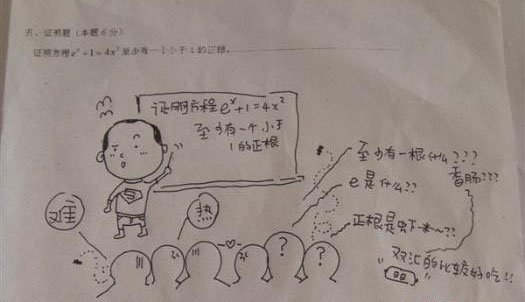 五、证明题（本题6分）
证明方程eˣ+1=4x²至少有一个小于1的正根.
证明方程eˣ+1=4x²
至少有一个小于
1的正根
至少有一根什么???
香肠???
e是什么??
难
热
正根是虾米~??
? ?
双汇的比较好吃!!